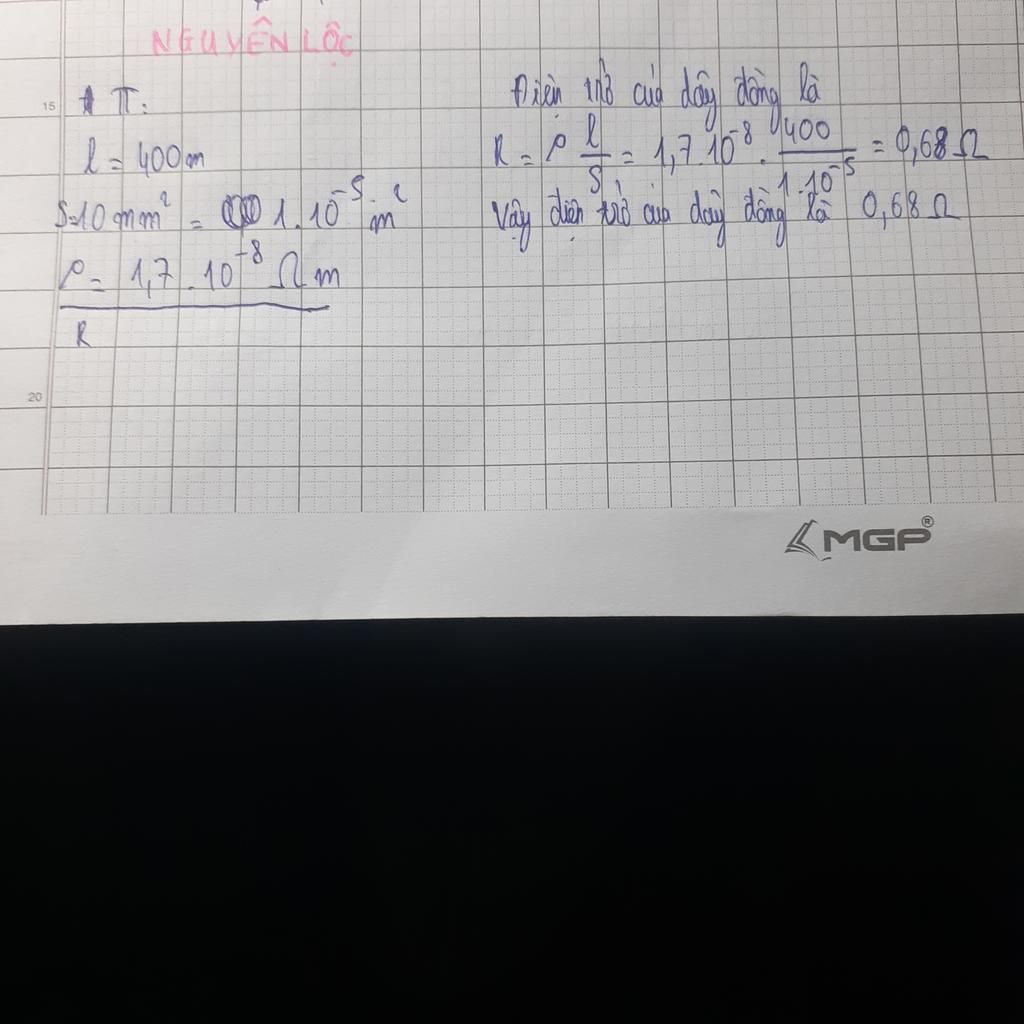 NGUYÊN LỘC
15
TT:
l = 400m
S=10mm² = 1.10⁻⁵ m²
ρ = 1,7.10⁻⁸ Ωm
R
20
Điện trở của dây đồng là
R = ρ l/S = 1,7.10⁻⁸ . 400/1.10⁻⁵ = 0,68 Ω
Vậy điện trở của dây đồng là 0,68 Ω
MGP®